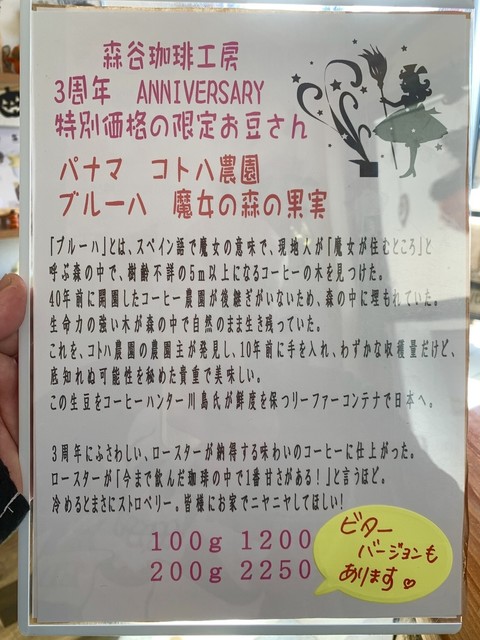 森谷珈琲工房
3周年 ANNIVERSARY
特別価格の限定お豆さん
パナマ コトハ農園
ブルーハ 魔女の森の果実
「ブルーハ」とは、スペイン語で魔女の意味で、現地人が「魔女が住むところ」と
呼ぶ森の中で、樹齢不詳の5m以上になるコーヒーの木を見つけた。
40年前に開園したコーヒー農園が後継ぎがいないため、森の中に埋もれていた。
生命力の強い木が森の中で自然のまま生き残っていた。
これを、コトハ農園の農園主が発見し、10年前に手を入れ、わずかな収穫量だけど、
底知れぬ可能性を秘めた貴重で美味しい。
この生豆をコーヒーハンター川島氏が鮮度を保つリーファーコンテナで日本へ。
3周年にふさわしい、ロースターが納得する味わいのコーヒーに仕上がった。
ロースターが「今まで飲んだ珈琲の中で1番甘さがある！」と言うほど。
冷めるとまさにストロベリー。皆様にお家でニヤニヤしてほしい！
100g 1200
200g 2250
ビター
バージョンも
あります♡